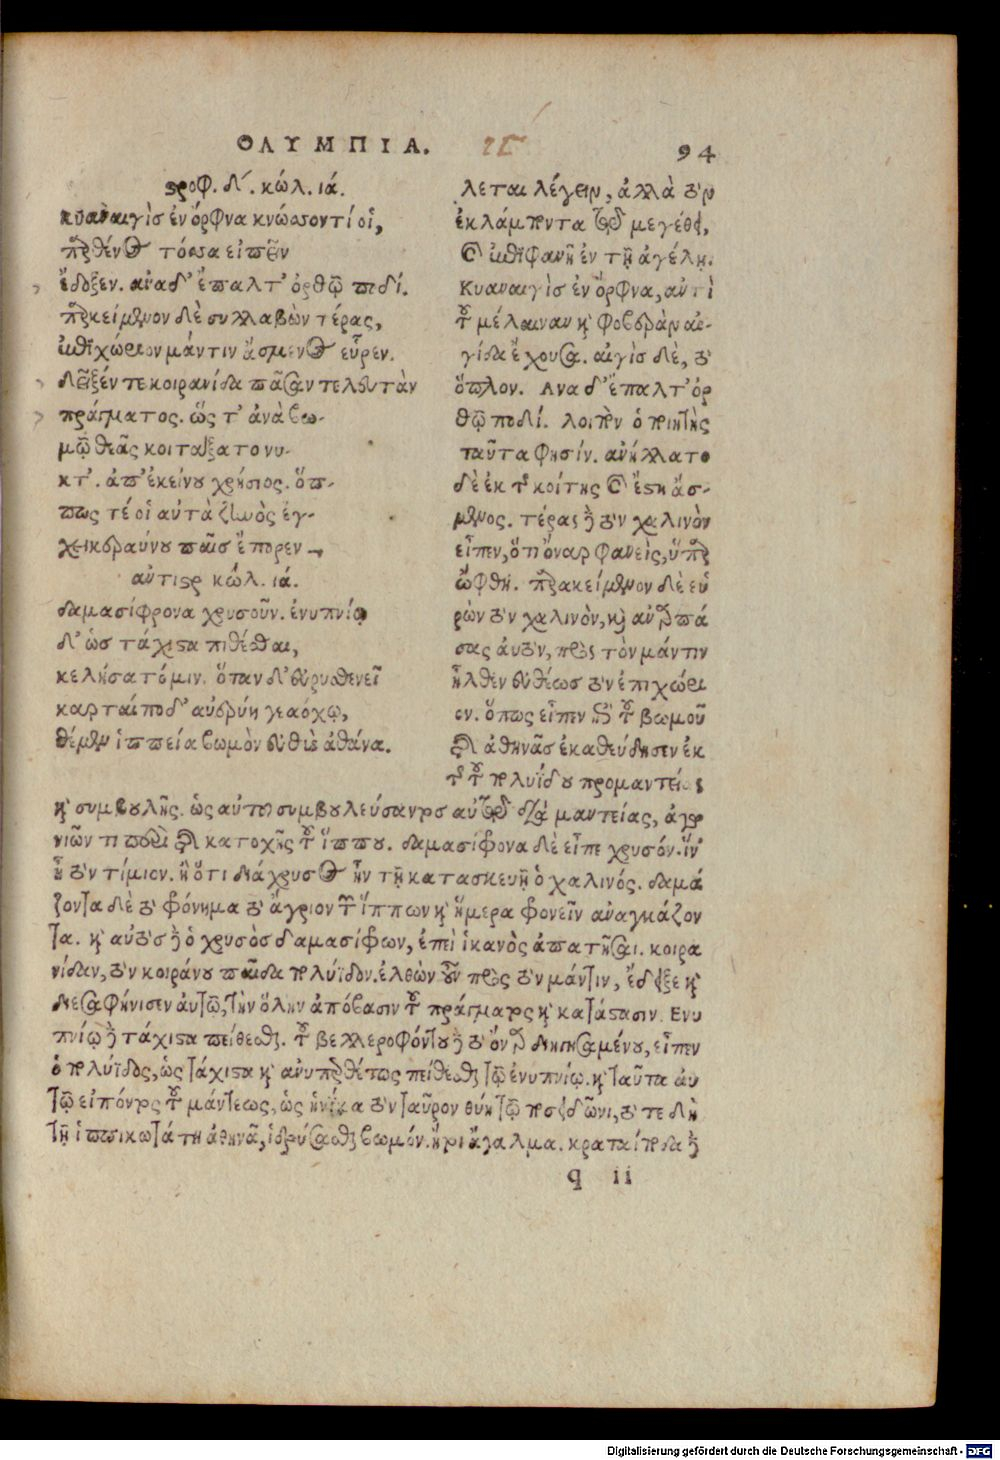 ΟΛΥΜΠΙΑ. 94
στροφ. δ΄. κώλ. ιά.
κυάναιγὶς ἐν ὄρφνα κνώσσοντί οἱ,
παρθένος τόσσα εἰπεῖν
ἔδοξεν. ἀνὰ δ' ἔπαλτ' ὀρθῷ ποδί.
παρκείμενον δὲ συλλαβὼν τέρας,
ἐπιχώριον μάντιν ἄσμενος εὗρεν.
δεῖξέν τε κοιρανίδα πᾶσαν τελευτὰν
πράγματος. ὥς τ' ἀνὰ βω-
μῷ θεᾶς κοιτάξατο νυ-
κτ'. ἀπ' ἐκείνου χρήσιος. ὅπ-
πως τέ οἱ αὐτὰ ζηνὸς ἐγ-
χεικεραύνου παῖσ ἔπορεν
αντιστρ κώλ. ιά.
δαμασίφρονα χρυσοῦν. ἐνυπνίῳ
δ' ὡσ τάχιστα πιθέσθαι,
κελήσατό μιν. ὅταν δ' εὐρυσθενεῖ
καρταίποδ' αὐερύῃ γεαόχῳ,
θέμεν ἱππείᾳ βωμὸν εὐθὺς ἀθάνᾳ.
λεται λέγειν, ἀλλὰ τὸν
ἐκλάμποντα τῷ μεγέθει,
καὶ ἐπιφανῆ ἐν τῇ ἀγέλῃ.
Κυαναιγὶς ἐν ὄρφνα, ἀντὶ
τοῦ μέλαιναν καὶ φοβερὰν αἰ-
γίδα ἔχουσα. αἰγὶς δὲ, τὸ
ὅπλον. Ανα δ' ἔπαλτ' ὀρ
θῷ ποδί. λοιπὸν ὁ ποιητὴς
ταῦτα φησίν. ἀνήλλατο
δὲ ἐκ τῆς κοίτης καὶ ἔστη ἄσ-
μενος. τέρας δὲ τὸν χαλινὸν
εἶπεν, ὅτι ὄναρ φανεὶς, ὕπαρ
ὤφθη. παρακείμενον δὲ εὑ
ρὼν τὸν χαλινὸν, καὶ ἀναρπά
σας αὐτὸν, πρὸς τὸν μάντιν
ἦλθεν εὐθέωσ τὸν ἐπιχώρι
ον. ὅπως εἶπεν ἐπὶ τοῦ βωμοῦ
τῆς ἀθηνᾶς ἐκαθεύδησεν ἐκ
τῆς τοῦ πολυΐδου προμαντείας
καὶ συμβουλῆς. ὡς αὐτῷ συμβουλεύσαντος αὐτῷ διὰ μαντείας, ἀγω
νιῶν τι ποιεῖ περὶ κατοχῆς τοῦ ἵππου. δαμασίφρονα δὲ εἶπε χρυσόν. ἵν'
ᾖ τὸν τίμιον. ἢ ὅτι διάχρυσος ἦν τῇ κατασκευῇ ὁ χαλινός. δαμά
ζοντα δὲ τὸ φρόνημα τὸ ἄγριον τῶν ἵππων καὶ ἥμερα φρονεῖν ἀναγκάζον
τα. καὶ αὐτὸς δὲ ὁ χρυσὸς δαμασίφρων, ἐπεὶ ἱκανὸς ἀπατῆσαι. κοιρα
νίδαν, τὸν κοιράνου παῖδα πολύϊδον. ἐλθὼν οὖν πρὸς τὸν μάντιν, ἔδειξε καὶ
διεσαφήνισεν αὐτῷ, τὴν ὅλην ἀπόβασιν τοῦ πράγματος καὶ κατάστασιν. Ενυ
πνίῳ δὲ τάχιστα πείθεσθαι. τοῦ βελλεροφόντου δὲ τὸ ὄναρ διηγησαμένου, εἶπεν
ὁ πολύϊδος, ὡς τάχιστα καὶ ἀνυπερθέτως πείθεσθαι τῷ ἐνυπνίῳ. καὶ ταῦτα αὐ
τῷ εἰπόντος τοῦ μάντεως, ὡς ἡνίκα τὸν ταῦρον θύῃ τῷ ποσειδῶνι, τότε δὴ
τῇ ἱππικωτάτῃ ἀθηνᾷ, ἱδρύσασθαι βωμόν. ἤτοι ἄγαλμα. κραταίποδα δὲ
q ii
Digitalisierung gefördert durch die Deutsche Forschungsgemeinschaft - DFG